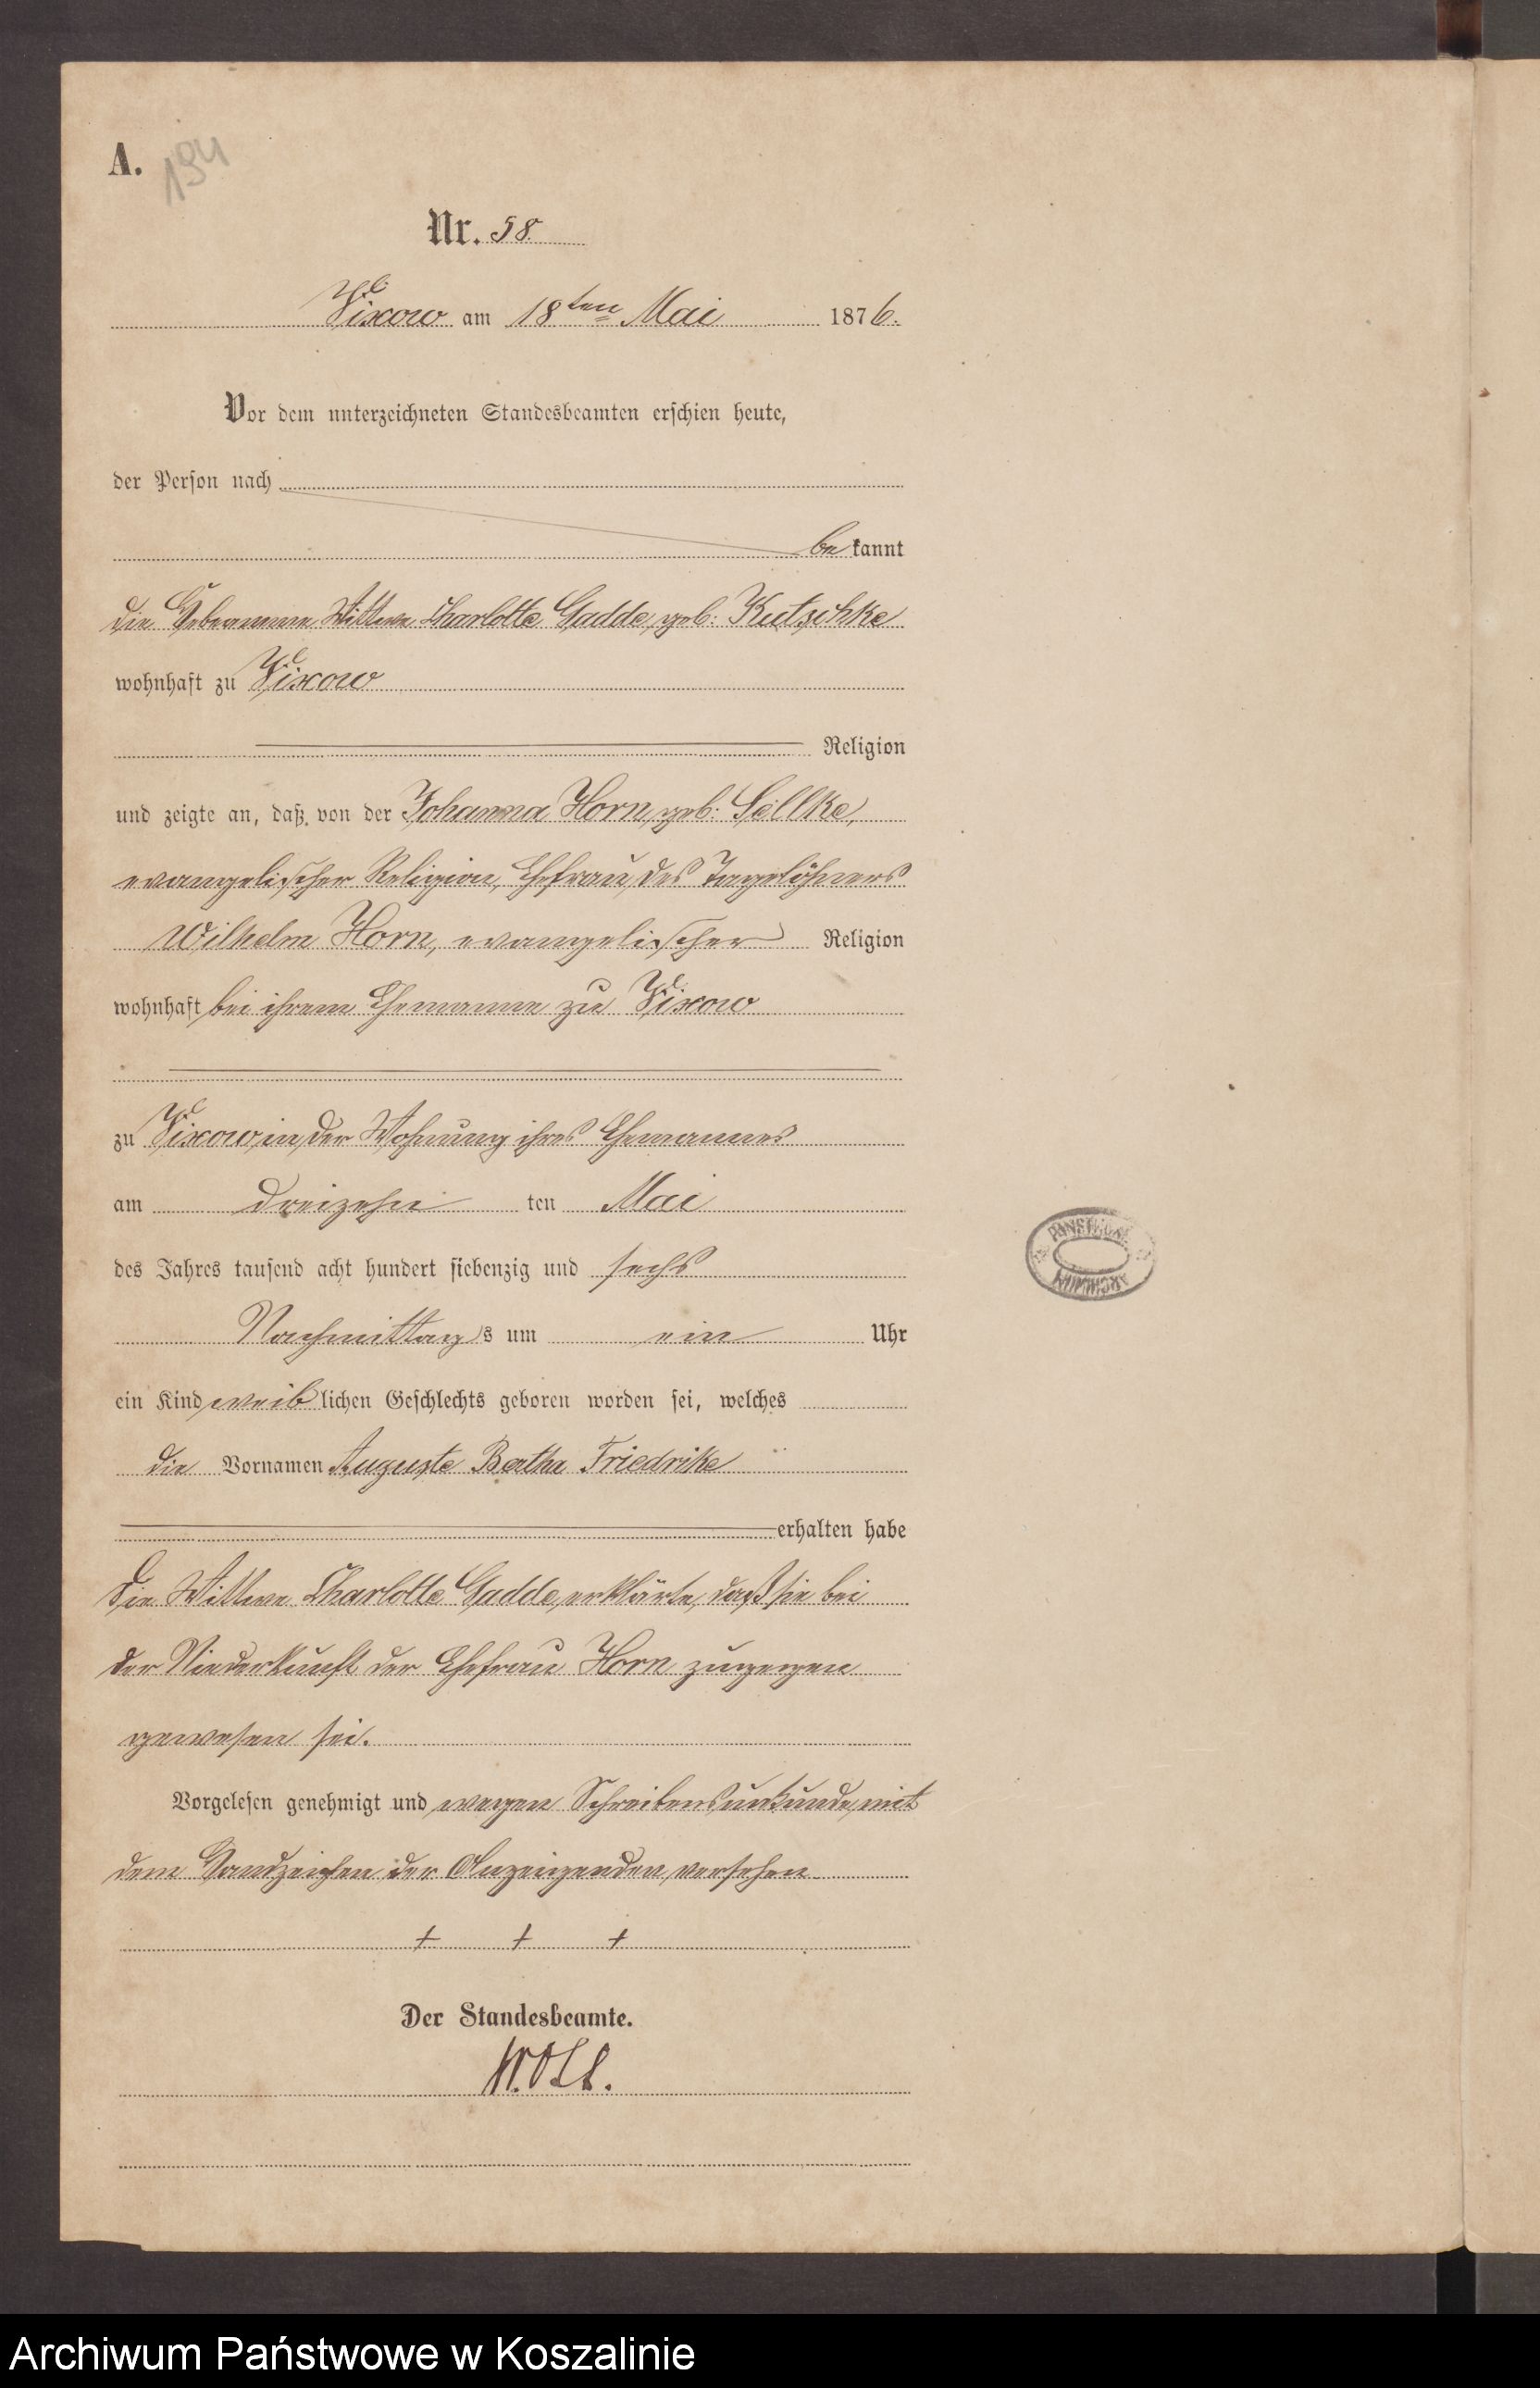 A.
194
Nr. 58.
Vixow am 18ten Mai 1876.
Vor dem unterzeichneten Standesbeamten erschien heute,
der Person nach
be kannt
die Hebeamme Wittwe Charlotte Gadde, geb: Kutschke
wohnhaft zu Vixow
Religion
und zeigte an, daß von der Johanna Horn, geb: Sellke,
evangelischer Religion, Ehefrau des Tagelöhners
Wilhelm Horn, evangelischer Religion
wohnhaft bei ihrem Ehemanne zu Vixow
zu Vixow in der Wohnung ihres Ehemannes
am dreizehn ten Mai
des Jahres tausend acht hundert siebenzig und sechs
Nachmittag s um ein Uhr
ein Kind weib lichen Geschlechts geboren worden sei, welches
die Vornamen Auguste Bertha Friedrike
erhalten habe
Die Wittwe Charlotte Gadde, erklärte, daß sie bei
der Niederkunft der Ehefrau Horn zugegen
gewesen sei.
Vorgelesen genehmigt und wegen Schreibensunkunde, mit
dem Handzeichen der Anzeigenden versehen
+ + +
Der Standesbeamte.
ARCHIWUM
Archiwum Państwowe w Koszalinie